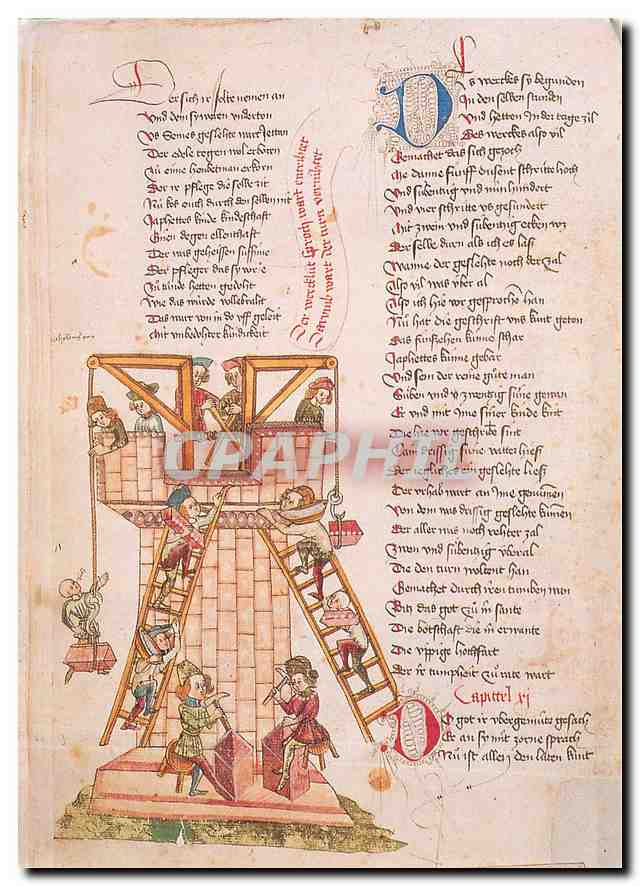 Der sich ir solte nemen an
Und dem sy weren undertон
Us Semes geslehte wart
Der edele tegen wol erborn
Zu eime houbetman erkorn
Der ir pflege die selbe zit
Nu kes ouch durch den selben nit
Japhettes kinde kindeschaft
Einen degen ellenthaft
Der was geheissen suffime
Der pfleger das sy wer e
Zu tunde hetten gedoht
Wie das wurde vollebraht
Das wart von in do uff geleit
Mit unbedohter kundikeit
Der wercklut sproch wart entrihtet
Darumb wart der turn vernihtet
Dis werckes sy begunden
In den selben stunden
Und hetten In der tage zil
Des werckes also vil
Gemachet das sich gezoch
Me danne funff dusent schritte hoch
Und sibentzig und nun hundert
Und vier schritte us gesundert
Mit zwein und sibentzig ecken
Der selbe durn als ich es las
Wanne der geslehte noch der zal
Also vil was uber al
Also ich hie vor gesprochen han
Nu hat die geschrift uns kunt geton
Das funfzehen kunne schar
Japhettes kunne gebar
Und sem der reine gute man
Siben und zwentzig sune gewan
Er und mit Ime siner kinde kint
Die hie vor geschriben sint
Cam drissig sune vatter hies
Der ieglicher ein geslehte lies
Der urhab wart an Ime genumen
Von dem was drissig geslehte kumen
Der aller was noch rehter zal
Zwen und sibentzig uberal
Die den turn woltent han
Gemachet durch iren tumben wan
Bitz das got zu in sante
Die botschaft die in erwante
Die uppige hochfart
Der ir tumpheit zu rate wart
Capittel xj
Do got ir ubergemute gesach
Er an sy mit zorne sprach
Nu ist alle den luten kunt
CPAPHIL